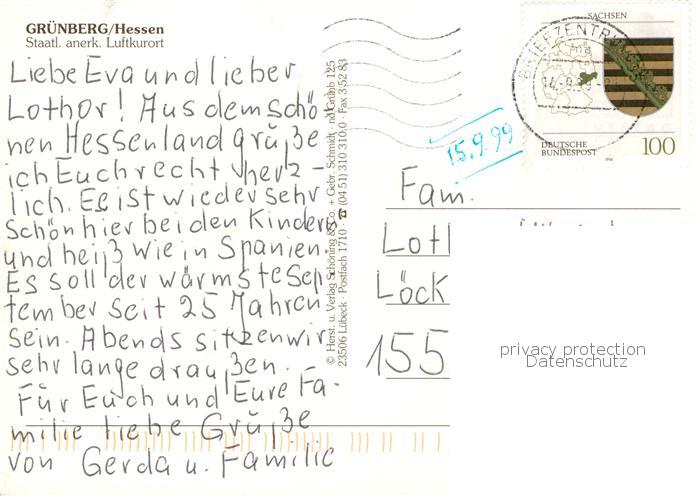 GRÜNBERG/Hessen
Staatl. anerk. Luftkurort
Liebe Eva und lieber
Lothar! Aus dem schö-
nen Hessenland grüße
ich Euch recht herz-
lich. Es ist wieder sehr
schön hier bei den Kindern
und heiß wie in Spanien.
Es soll der wärmste Sep-
tember seit 25 Jahren
sein. Abends sitzen wir
sehr lange draußen.
Für Euch und Eure Fa-
milie liebe Grüße
von Gerda u. Familie
© Herst. u. Verlag Schöning & Co. + Gebr. Schmidt · nd Grünb 125
23506 Lübeck · Postfach 1710 · ☎ (04 51) 310 310,0 · Fax 3 52 83
SACHSEN
BRIEFZENTRUM
DEUTSCHE
BUNDESPOST
1994
100
15.9.99
Fam.
Lotl
Löck
155
privacy protection
Datenschutz